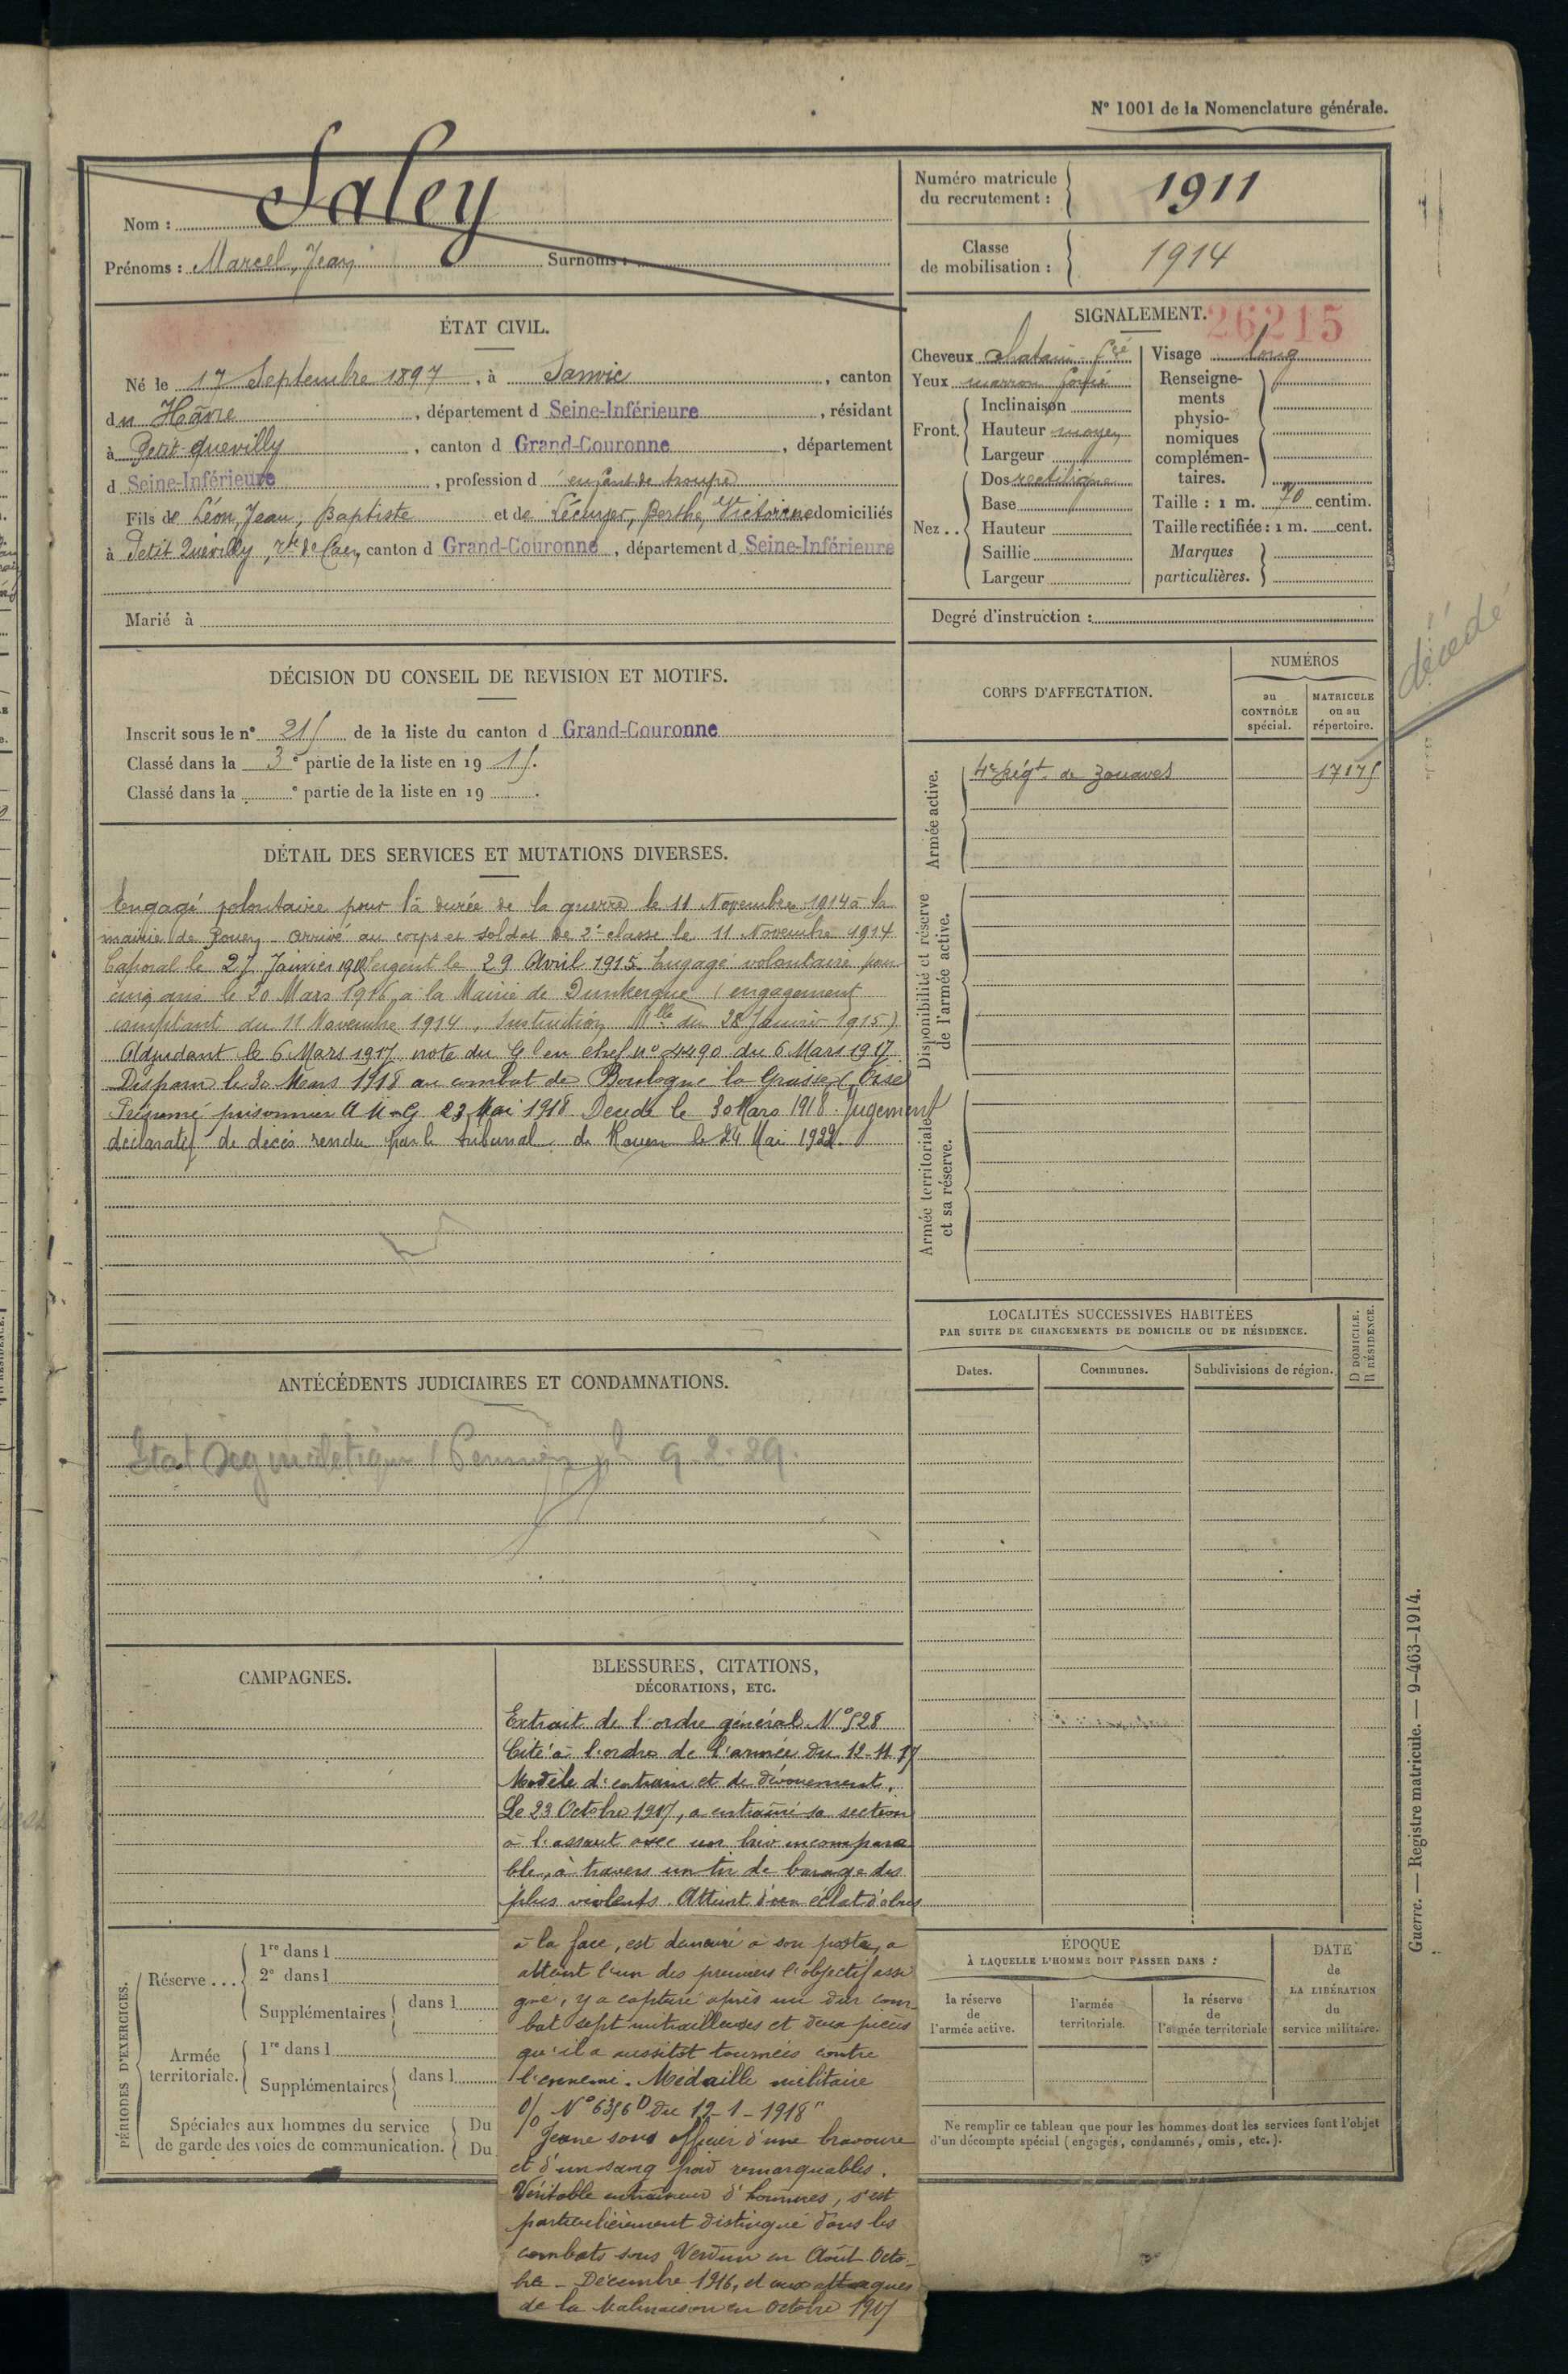 N° 1001 de la Nomenclature générale.
Nom : Saley
Prénoms : Marcel, Jean Surnoms :
Numéro matricule du recrutement : 1911
Classe de mobilisation : 1914
ÉTAT CIVIL.
Né le 17 Septembre 1897, à Sanvic, canton
du Hâvre, département d Seine-Inférieure, résidant
à Petit-Quevilly, canton d Grand-Couronne, département
d Seine-Inférieure, profession d enfant de troupe
Fils de Léon, Jean, Baptiste et de Lécuyer, Berthe, Victorine domiciliés
à Petit Quévilly, rte de Caen, canton d Grand-Couronne, département d Seine-Inférieure
Marié à
SIGNALEMENT. 26215
Cheveux chatain fcé
Yeux marron foncé
Front. Inclinaison
Hauteur moyen
Largeur
Nez . . Dos rectiligne
Base
Hauteur
Saillie
Largeur
Visage long
Renseigne-
ments
physio-
nomiques
complémen-
taires.
Taille : 1 m. 70 centim.
Taille rectifiée : 1 m. cent.
Marques
particulières.
Degré d'instruction :
décédé
DÉCISION DU CONSEIL DE REVISION ET MOTIFS.
Inscrit sous le n° 215 de la liste du canton d Grand-Couronne
Classé dans la 3e partie de la liste en 1915.
Classé dans la e partie de la liste en 19 .
CORPS D'AFFECTATION.
NUMÉROS
au CONTRÔLE spécial.
MATRICULE ou au répertoire.
Armée active.
4e Régt de Zouaves 17175
Disponibilité et réserve de l'armée active.
Armée territoriale et sa réserve.
DÉTAIL DES SERVICES ET MUTATIONS DIVERSES.
Engagé volontaire pour la durée de la guerre le 11 Novembre 1914 à la
mairie de Rouen arrivé au corps et soldat de 2e classe le 11 Novembre 1914
Caporal le 27 Janvier 1915 Sergent le 29 Avril 1915. Engagé volontaire pour
cinq ans le 30 Mars 1916 à la Mairie de Dunkerque (engagement
comptant du 11 Novembre 1914, Instruction Mlle du 28 Janvier 1915)
Adjudant le 6 Mars 1917 note du Gl en chef n° 4490 du 6 Mars 1917
Disparu le 30 Mars 1918 au combat de Boulogne la Grasse (Oise)
Présumé prisonnier A.M.G. 23 Mai 1918 Décédé le 30 Mars 1918. Jugement
déclaratif de décès rendu par le tribunal de Rouen le 24 Mai 1922.
ANTÉCÉDENTS JUDICIAIRES ET CONDAMNATIONS.
9-2-29.
LOCALITÉS SUCCESSIVES HABITÉES
PAR SUITE DE CHANGEMENTS DE DOMICILE OU DE RÉSIDENCE.
Dates. Communes. Subdivisions de région. D DOMICILE. R RÉSIDENCE.
CAMPAGNES.
BLESSURES, CITATIONS,
DÉCORATIONS, ETC.
Extrait de l'ordre général N° 528
Cité à l'ordre de l'armée du 12-11-17
Modèle d'entrain et de dévouement.
Le 23 Octobre 1917, a entrainé sa section
à l'assaut avec un brio incompara
ble, à travers un tir de barage des
plus violents. Atteint d'un éclat d'obus
à la face, est demeuré à son poste, a
atteint l'un des premiers l'objectif assi
gné, y a capturé après un dur com-
bat sept mitrailleuses et deux pièces
qu'il a aussitot tournées contre
l'ennemi. Médaille militaire
O/ N° 6356 D du 12-1-1918"
Jeune sous officier d'une bravoure
et d'un sang froid remarquables.
Véritable entraineur d'hommes, s'est
particulièrement distingué dans les
combats sous Verdun en Août Octo-
bre - Décembre 1916, et aux attaques
de la Malmaison en Octobre 1917
PÉRIODES D'EXERCICES.
Réserve . . . 1re dans l
2e dans l
Supplémentaires dans l
Armée territoriale. 1re dans l
Supplémentaires dans l
Spéciales aux hommes du service
de garde des voies de communication. Du
Du
ÉPOQUE
À LAQUELLE L'HOMME DOIT PASSER DANS :
la réserve de l'armée active.
l'armée territoriale.
la réserve de l'armée territoriale
DATE de LA LIBÉRATION du service militaire.
Ne remplir ce tableau que pour les hommes dont les services font l'objet
d'un décompte spécial (engagés, condamnés, omis, etc.).
Guerre. — Registre matricule. — 9-463-1914.